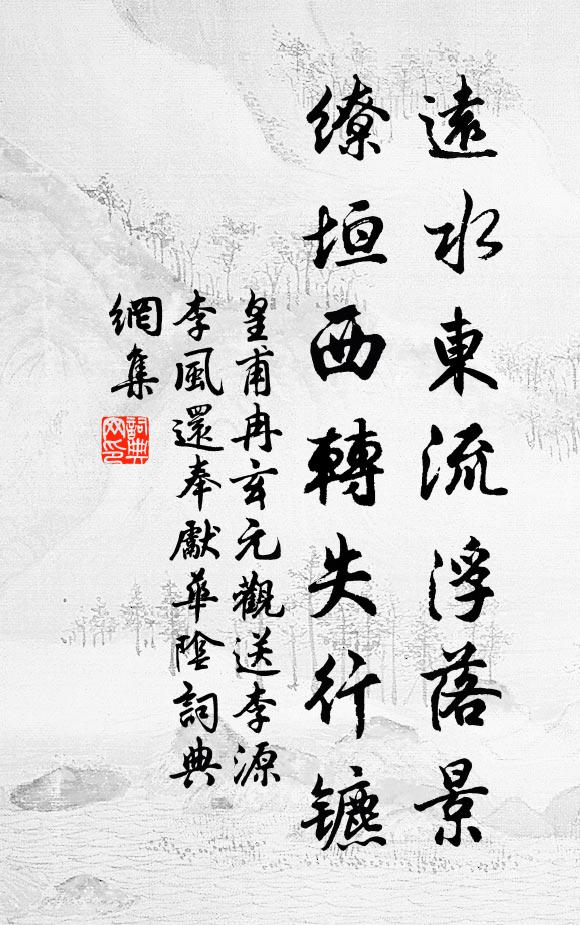 遠水東流浮落景
繚垣西轉失行鑣
皇甫冉玄元觀送李源
李風還奉獻華陰詞典
網集
詞典
网印